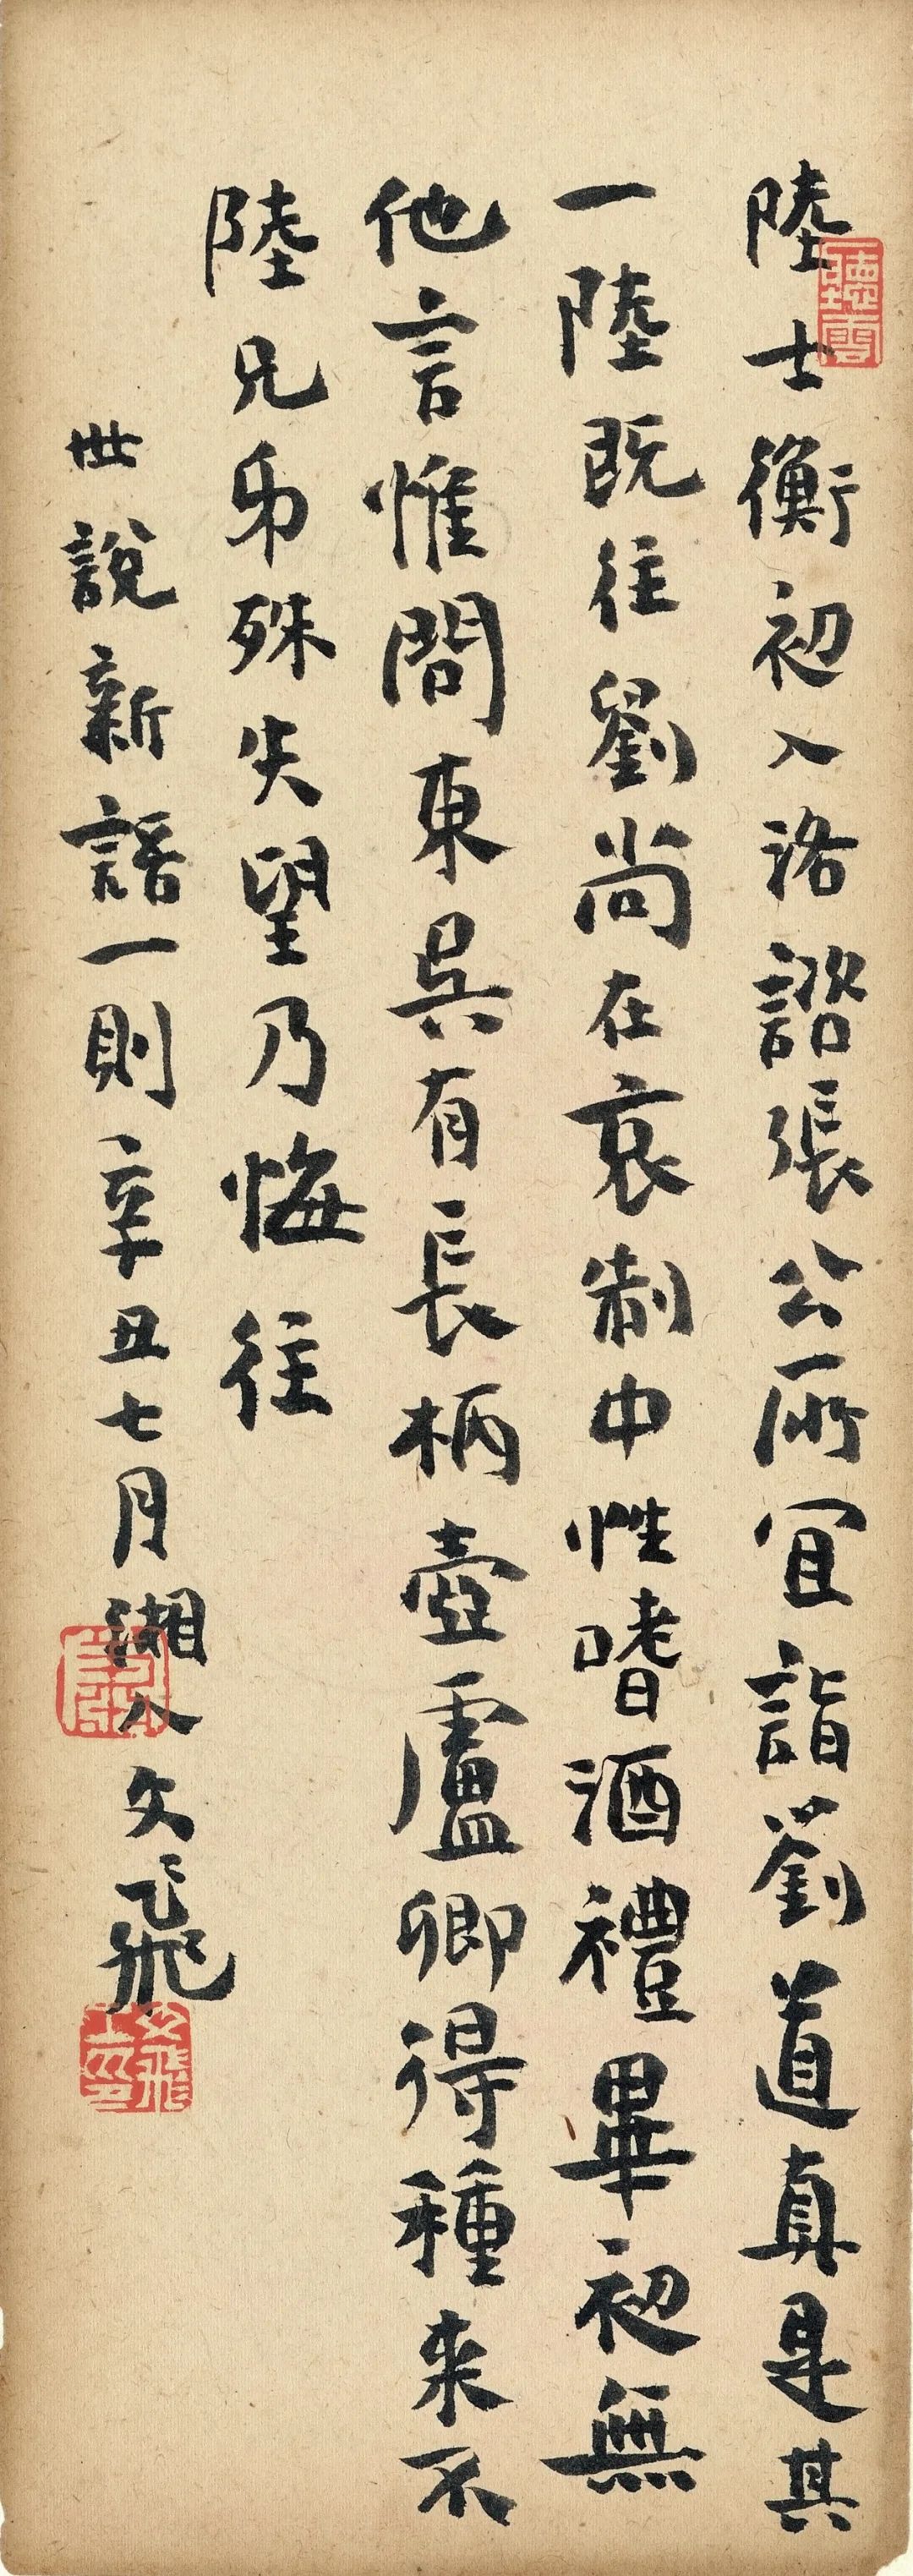 陸士衡初入洛諮張公所宜詣劉道真是其
一陸既往劉尚在哀制中性嗜酒禮畢初無
他言惟問東吳有長柄壺盧卿得種来不
陸兄弟殊失望乃悔往
世說新語一則辛丑七月湘人文飛
聽雲
文飛